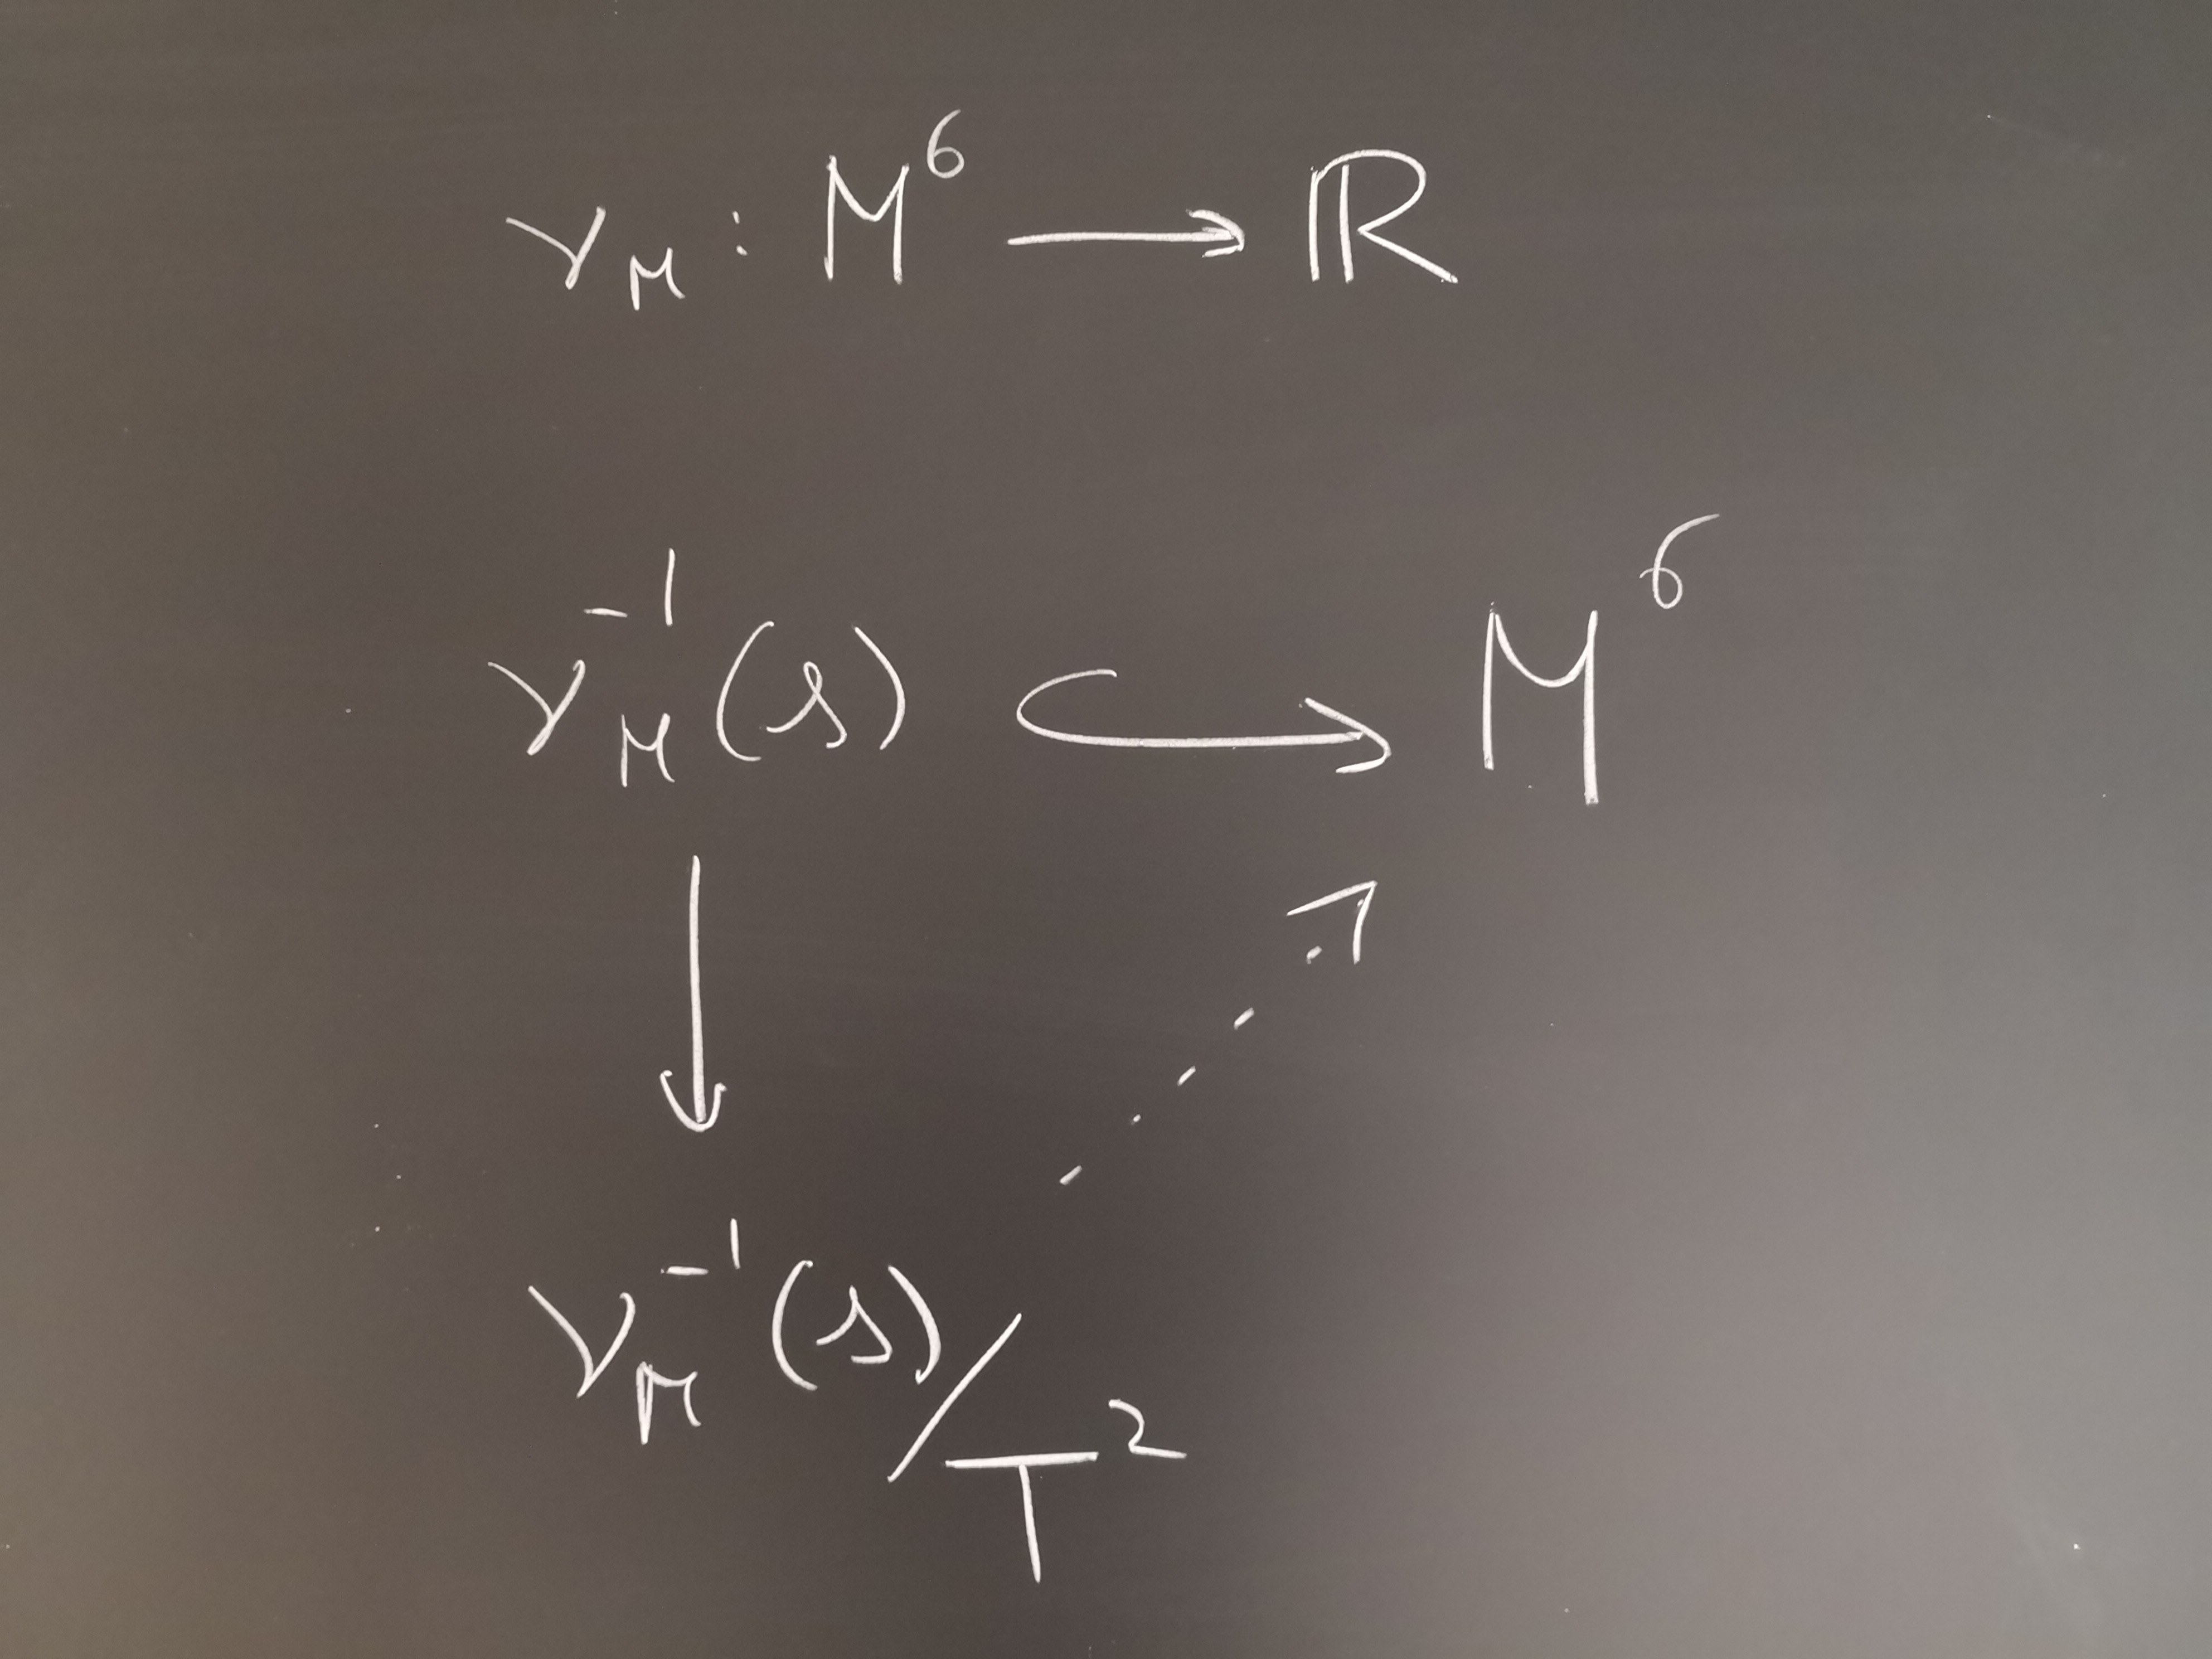 ν_M : M⁶ ⟶ ℝ
ν_M⁻¹(s) ↪ M⁶
ν_M⁻¹(s)/T²